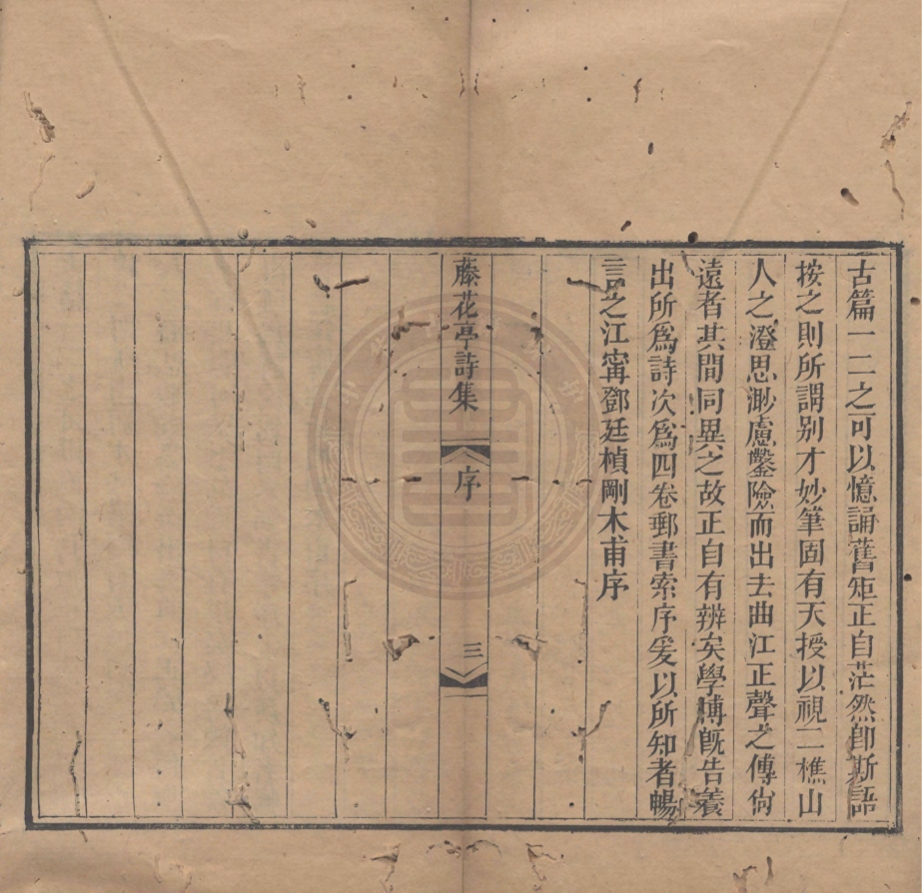 古篇一二之可以憶誦舊矩正自茫然卽斯語
按之則所謂别才妙筆固有天授以視二樵山
人之澄思渺慮鑿險而出去曲江正聲之傳尙
遠者其間同異之故正自有辨矣學博旣告養
出所爲詩次爲四卷郵書索序爰以所知者暢
言之江寗鄧廷楨剛木甫序
藤花亭詩集
序
三